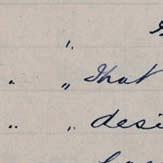 "
" " That
" " desi